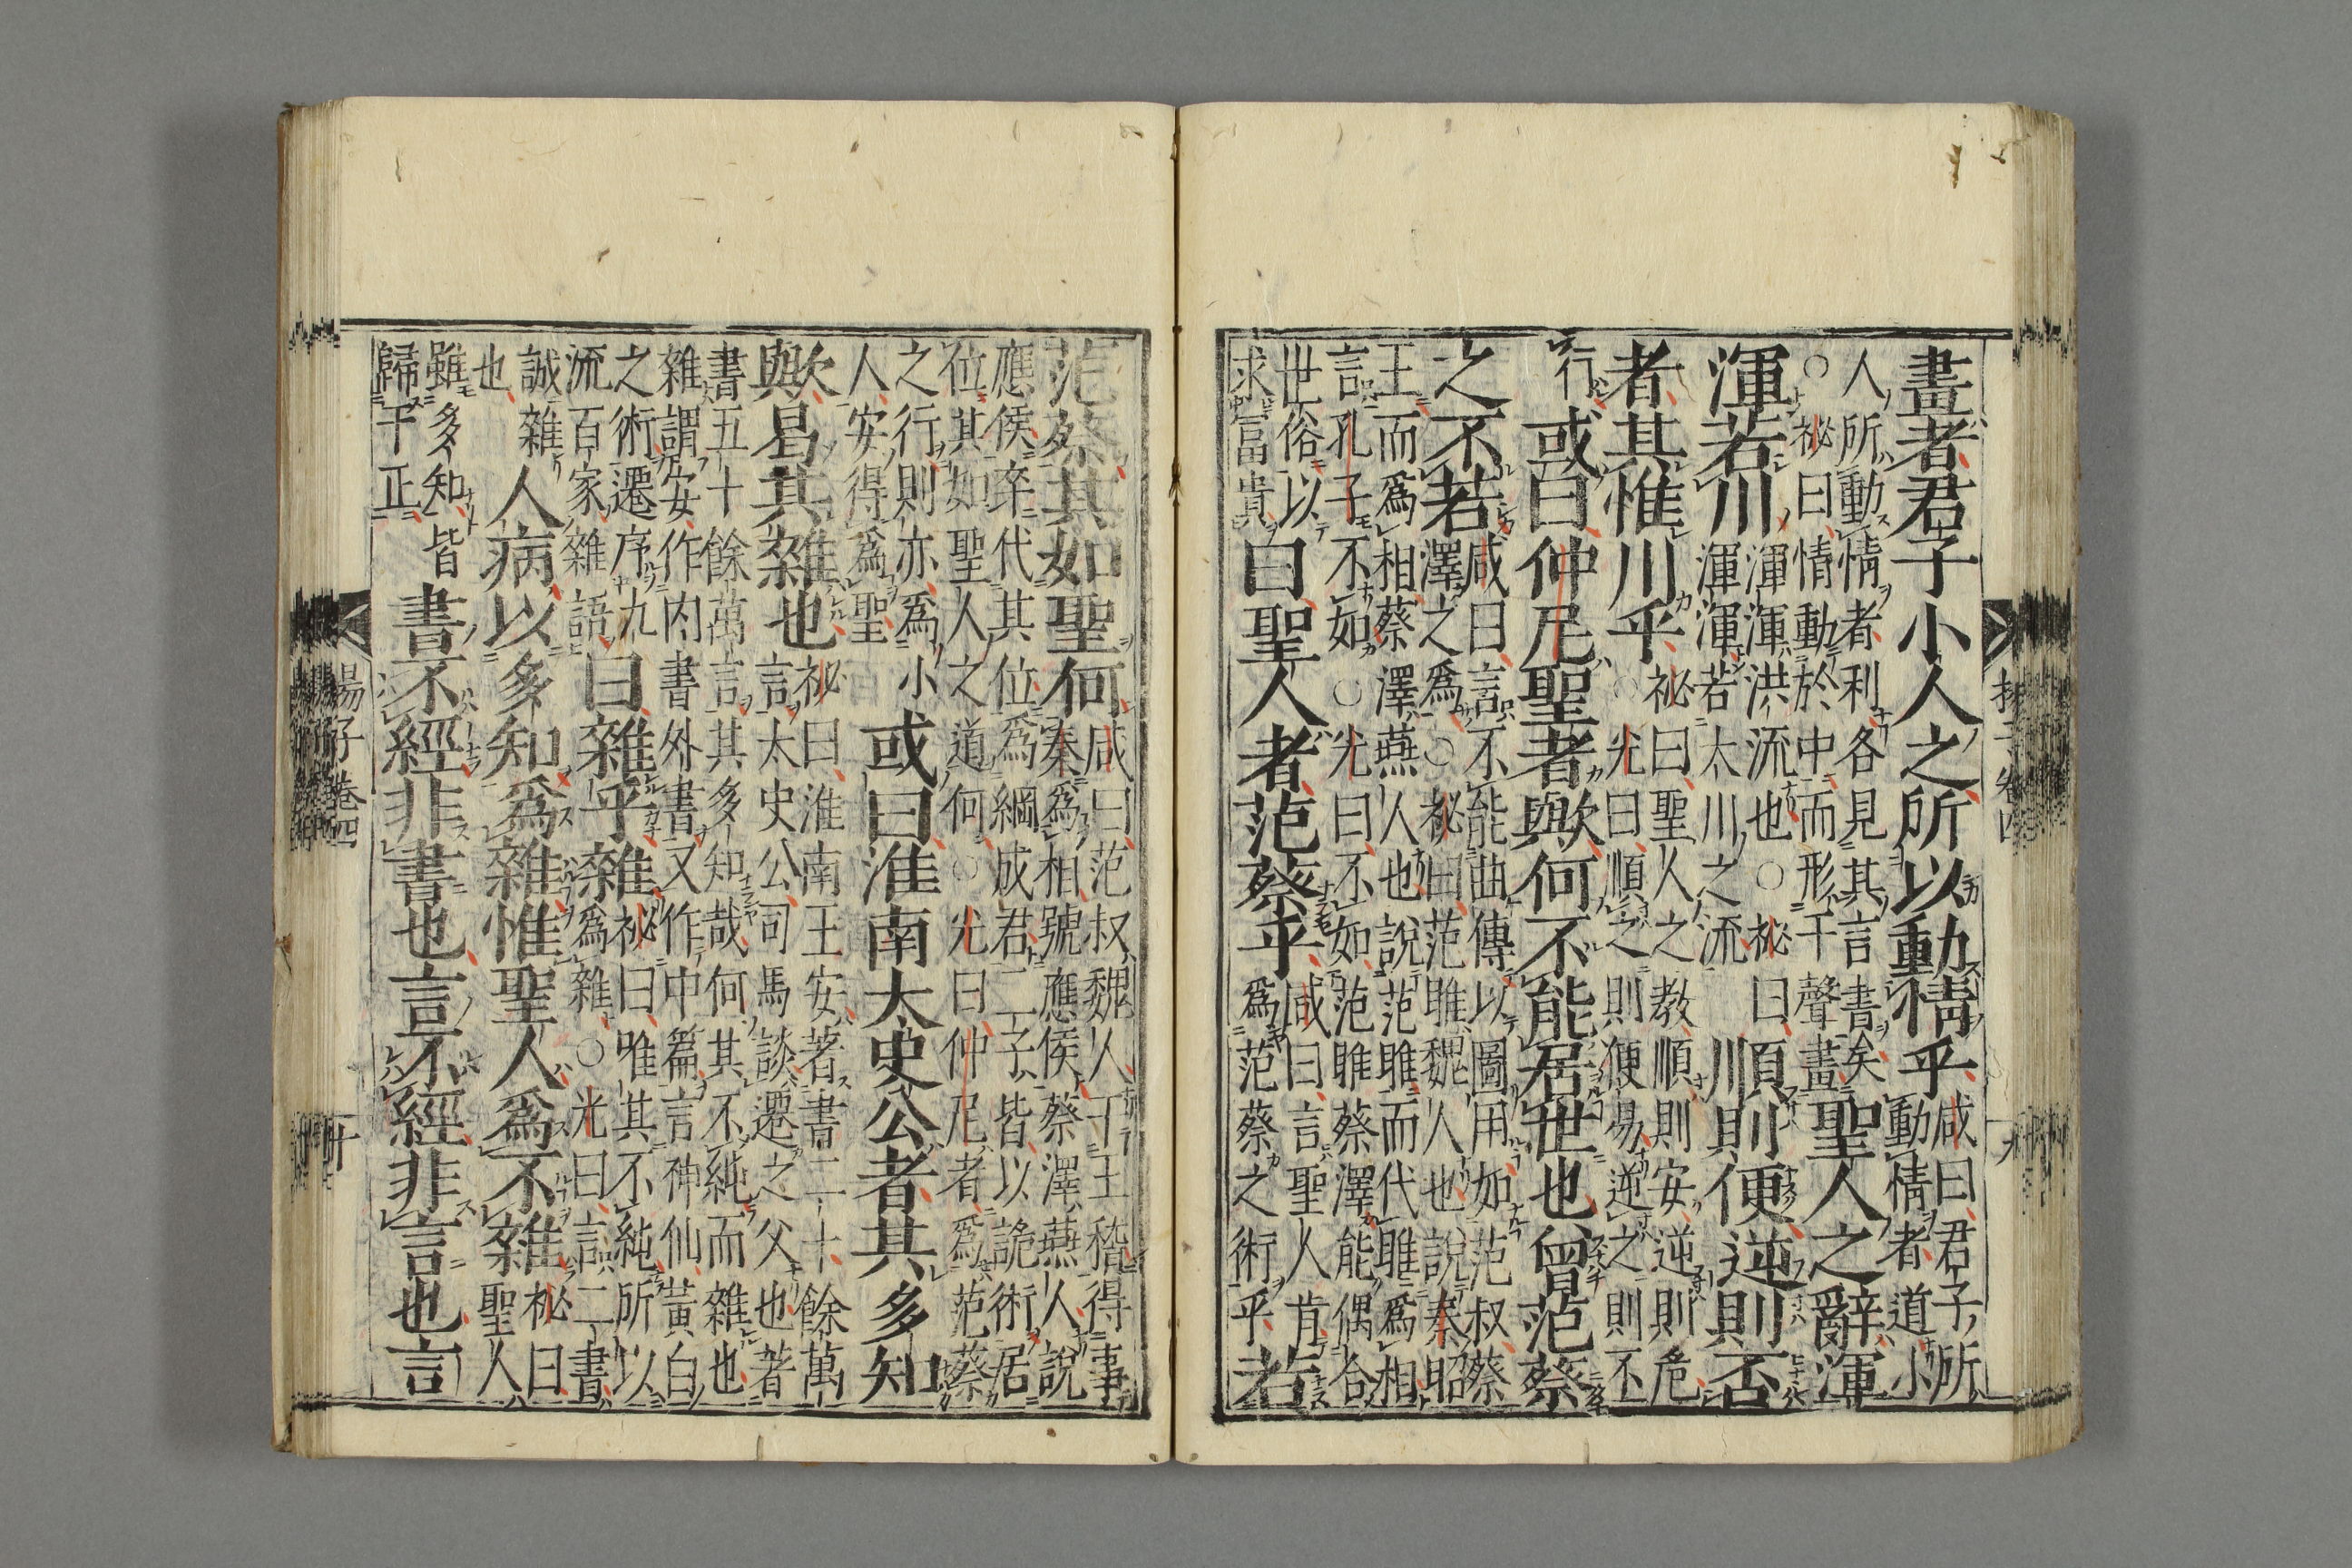 畫者君子小人之所以動情乎咸曰君子所
動情者道小
人所動情者利各見其言書矣
○祕曰情動於中而形于聲畫聖人之辭渾
渾若川渾渾洪流也○祕曰
渾渾若太川之流順則便逆則否
者其惟川乎祕曰聖人之教順則安逆則危
○光曰順之則便易逆之則不
行或曰仲尼聖者歟何不能居世也曾范蔡
之不若咸曰言不能曲傳以圖用如范叔蔡
澤之爲○祕曰范雎魏人也說秦昭
王而爲相蔡澤燕人也說范雎而代雎爲相
言孔子不如○光曰不如范雎蔡澤能偶合
世俗以
求冨貴曰聖人者范蔡乎咸曰言聖人肯
爲范蔡之術乎若
范蔡其如聖何咸曰范叔魏人干王稽得事
秦爲相號應侯蔡澤燕人說
應侯卒代其位爲綱成君二子皆以詭術居
位其如聖人之道何○光曰仲尼者爲范蔡
之行則亦爲小
人安得爲聖或曰淮南太史公者其多知
歟曷其雜也祕曰淮南王安著書二十餘萬
言太史公司馬談遷之父也著
書五十餘萬言其多知哉何其不純而雜也
雜謂安作内書外書又作中篇言神仙黃白
之術遷序九
流百家雜語曰雜乎雜祕曰唯其不純所以
爲雜○光曰言二書
誠雜
也人病以多知爲雜惟聖人爲不雜祕曰
聖人
雖多知皆
歸于正書不經非書也言不經非言也言
楊子卷四
十
揚子卷四
九